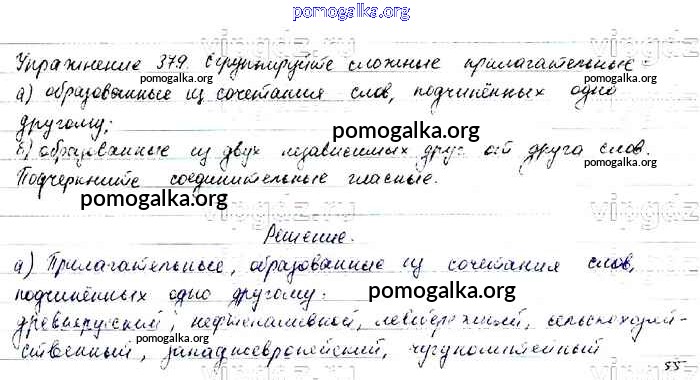 pomogalka.org
Упражнение 379. Сгруппируйте сложные прилагательные
pomogalka.org pomogalka.org
а) образованные из сочетания слов, подчинённых одно
другому;
pomogalka.org
б) образованные из двух независимых друг от друга слов.
Подчеркните соединительные гласные.
pomogalka.org
Решение.
а) Прилагательные, образованные из сочетания слов,
подчинённых одно другому:
pomogalka.org
древнерусский, нефтеналивной, левобережный, сельскохозяй-
ственный, западноевропейский, чугунолитейный
55